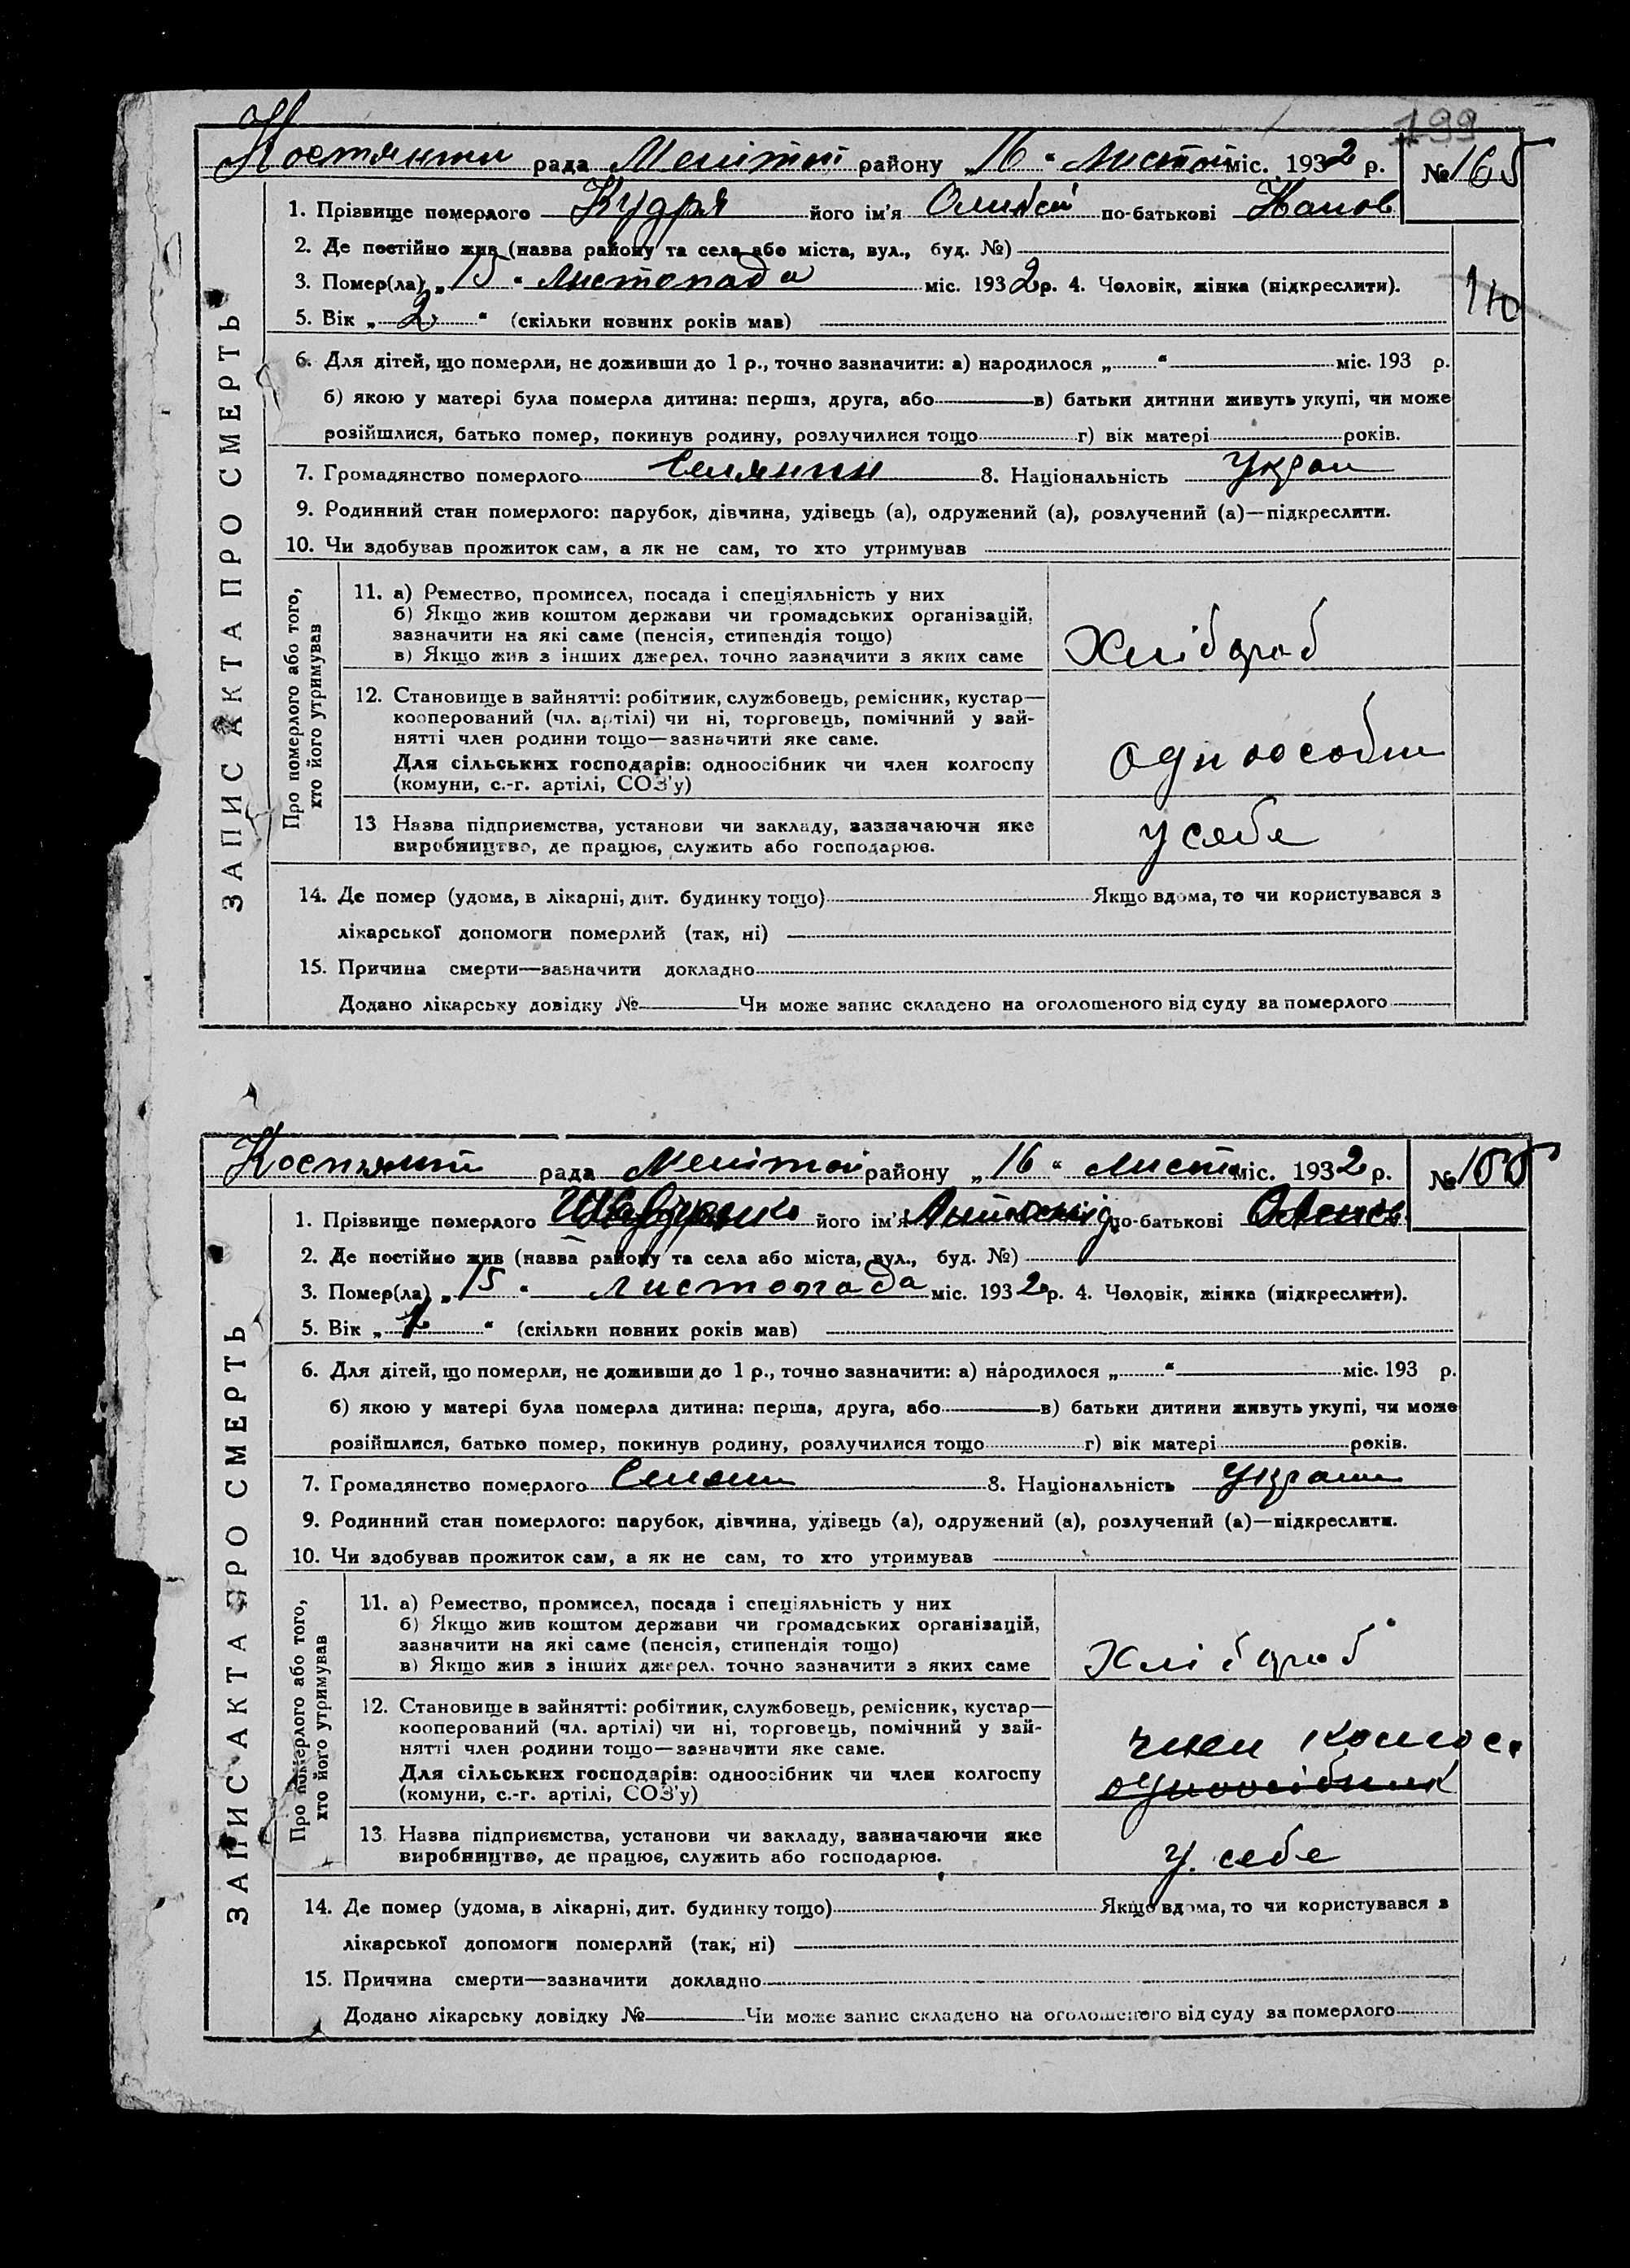 199
Костянтин рада Мелітоп району „16“ Листоп міс. 1932 р. № 165
1. Прізвище померлого Кудря його ім'я Олексій по-батькові
2. Де постійно жив (назва району та села або міста, вул., буд. №)
3. Помер(ла) „15“ Листопада міс. 1932 р. 4. Чоловік, жінка (підкреслити).
5. Вік „2“ (скільки повних років мав)
6. Для дітей, що померли, не доживши до 1 р., точно зазначити: а) народилося „ “ міс. 193 р.
б) якою у матері була померла дитина: перша, друга, або в) батьки дитини живуть укупі, чи може
розійшлися, батько помер, покинув родину, розлучилися тощо г) вік матері років.
7. Громадянство померлого Селянин 8. Національність Украи
9. Родинний стан померлого: парубок, дівчина, удівець (а), одружений (а), розлучений (а)—підкреслити.
10. Чи здобував прожиток сам, а як не сам, то хто утримував
ЗАПИС АКТА ПРО СМЕРТЬ
Про померлого або того,
хто його утримував
11. а) Ремество, промисел, посада і спеціяльність у них
б) Якщо жив коштом держави чи громадських організацій,
зазначити на які саме (пенсія, стипендія тощо)
в) Якщо жив з інших джерел, точно зазначити з яких саме
Хлібороб
12. Становище в зайнятті: робітник, службовець, ремісник, кустар—
кооперований (чл. артілі) чи ні, торговець, помічний у зай-
нятті член родини тощо—зазначити яке саме.
Для сільських господарів: одноосібник чи член колгоспу
(комуни, с.-г. артілі, СОЗ'у)
одноособн
13 Назва підприємства, установи чи закладу, зазначаючи яке
виробництво, де працює, служить або господарює.
у себе
14. Де помер (удома, в лікарні, дит. будинку тощо) Якщо вдома, то чи користувався з
лікарської допомоги померлий (так, ні)
15. Причина смерти—зазначити докладно
Додано лікарську довідку № Чи може запис складено на оголошеного від суду за померлого
Костянтин рада Мелітоп району „16“ Листоп міс. 1932 р. №
1. Прізвище померлого його ім'я по-батькові
2. Де постійно жив (назва району та села або міста, вул., буд. №)
3. Помер(ла) „15“ листопада міс. 1932 р. 4. Чоловік, жінка (підкреслити).
5. Вік „ “ (скільки повних років мав)
6. Для дітей, що померли, не доживши до 1 р., точно зазначити: а) народилося „ “ міс. 193 р.
б) якою у матері була померла дитина: перша, друга, або в) батьки дитини живуть укупі, чи може
розійшлися, батько помер, покинув родину, розлучилися тощо г) вік матері років.
7. Громадянство померлого Селянин 8. Національність Украин
9. Родинний стан померлого: парубок, дівчина, удівець (а), одружений (а), розлучений (а)—підкреслити.
10. Чи здобував прожиток сам, а як не сам, то хто утримував
ЗАПИС АКТА ПРО СМЕРТЬ
Про померлого або того,
хто його утримував
11. а) Ремество, промисел, посада і спеціяльність у них
б) Якщо жив коштом держави чи громадських організацій,
зазначити на які саме (пенсія, стипендія тощо)
в) Якщо жив з інших джерел, точно зазначити з яких саме
Хлібороб
12. Становище в зайнятті: робітник, службовець, ремісник, кустар—
кооперований (чл. артілі) чи ні, торговець, помічний у зай-
нятті член родини тощо—зазначити яке саме.
Для сільських господарів: одноосібник чи член колгоспу
(комуни, с.-г. артілі, СОЗ'у)
член колгос.
одноосібник
13 Назва підприємства, установи чи закладу, зазначаючи яке
виробництво, де працює, служить або господарює.
у себе
14. Де помер (удома, в лікарні, дит. будинку тощо) Якщо вдома, то чи користувався з
лікарської допомоги померлий (так, ні)
15. Причина смерти—зазначити докладно
Додано лікарську довідку № Чи може запис складено на оголошеного від суду за померлого